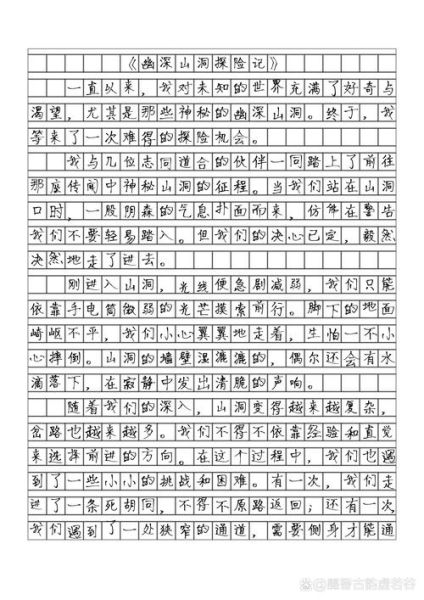 《幽深山洞探险记》
一直以来，我对未知的世界充满了好奇与
渴望，尤其是那些神秘的幽深山洞。终于，我
等来了一次难得的探险机会。
我与几位志同道合的伙伴一同踏上了前往
那座传闻中神秘山洞的征程。当我们站在山洞
口时，一股阴森的气息扑面而来，仿佛在警告
我们不要轻易踏入。但我们的决心已定，毅然
决然地走了进去。
刚进入山洞，光线便急剧减弱，我们只能
依靠手电筒微弱的光芒摸索前行。脚下的地面
崎岖不平，我们小心翼翼地走着，生怕一不小
心摔倒。山洞的墙壁湿漉漉的，偶尔还会有水
滴落下，在寂静中发出清脆的声响。
随着我们的深入，山洞变得越来越复杂，
岔路也越来越多。我们不得不依靠经验和直觉
来选择前进的方向。在这个过程中，我们也遇
到了一些小小的挑战和困难。有一次，我们走
进了一条死胡同，不得不原路返回；还有一次，
我们遇到了一处狭窄的通道，需要侧身才能通
@魔兽古韵虚若谷